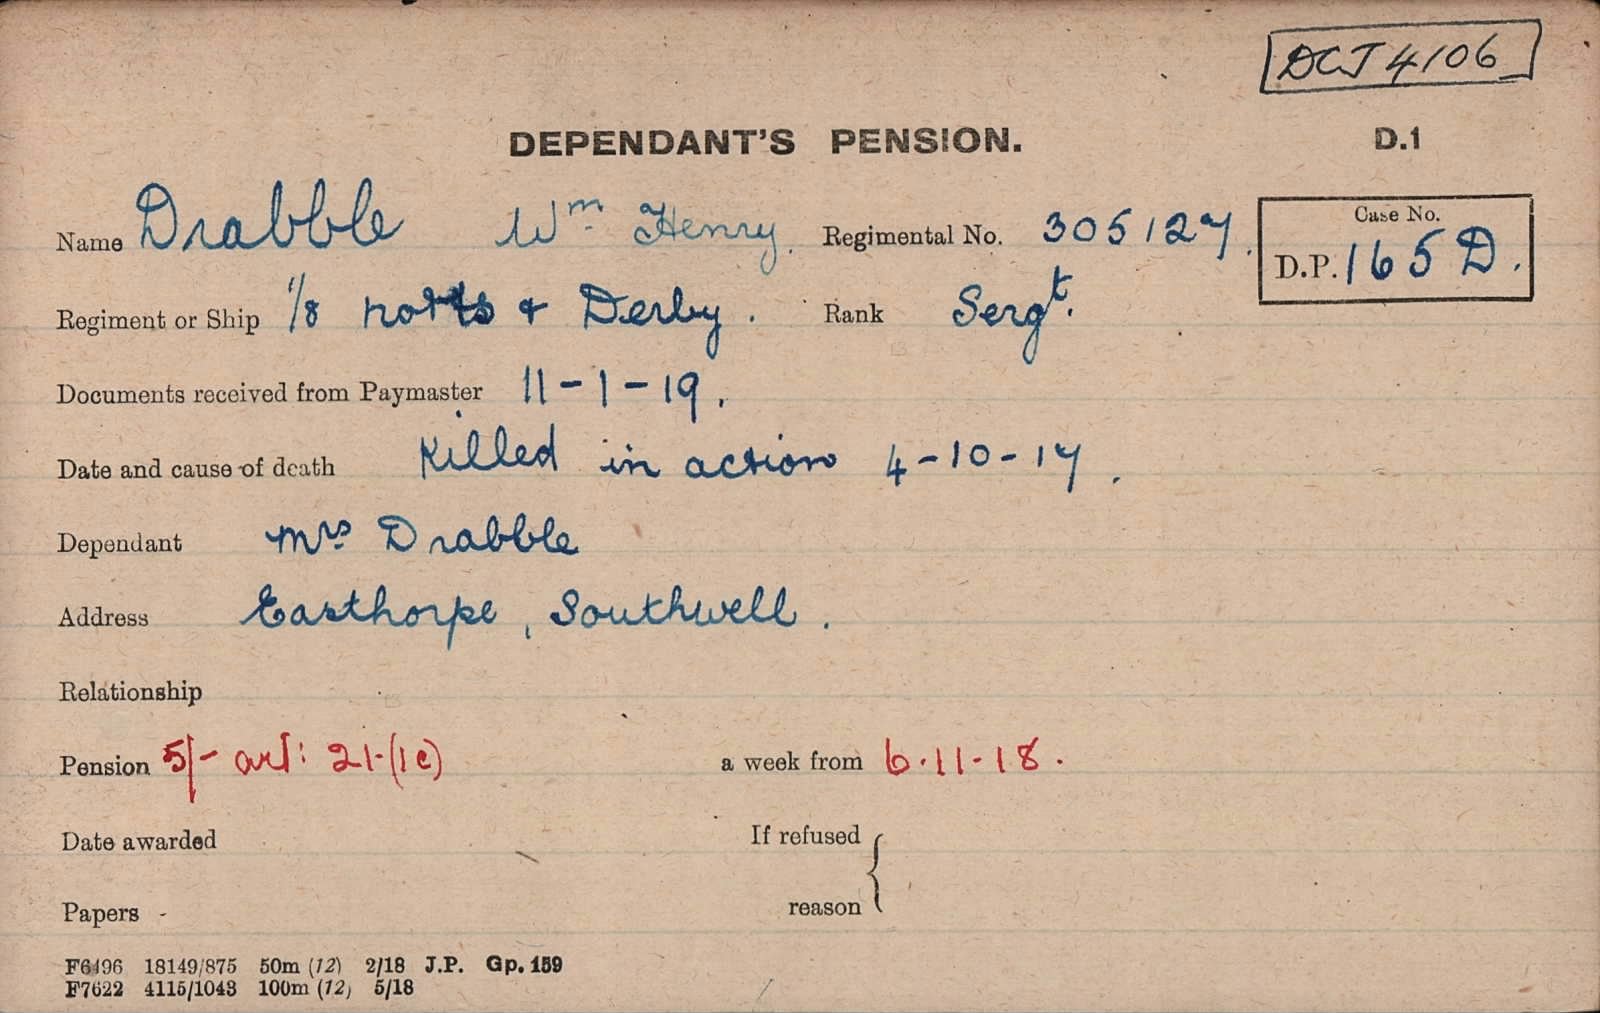 DCJ 4106
DEPENDANT'S PENSION. D.1
Name Drabble Wm. Henry. Regimental No. 305127. Case No.
D.P. 165 D.
Regiment or Ship 1/8 Notts & Derby. Rank Sergt.
Documents received from Paymaster 11-1-19.
Date and cause of death Killed in action 4-10-17.
Dependant Mrs Drabble
Address Easthorpe, Southwell.
Relationship
Pension 5/- art: 21-(1c) a week from 6.11-18.
Date awarded If refused
Papers - reason
F6496 18149/875 50m (12) 2/18 J.P. Gp. 159
F7622 4115/1043 100m (12) 5/18